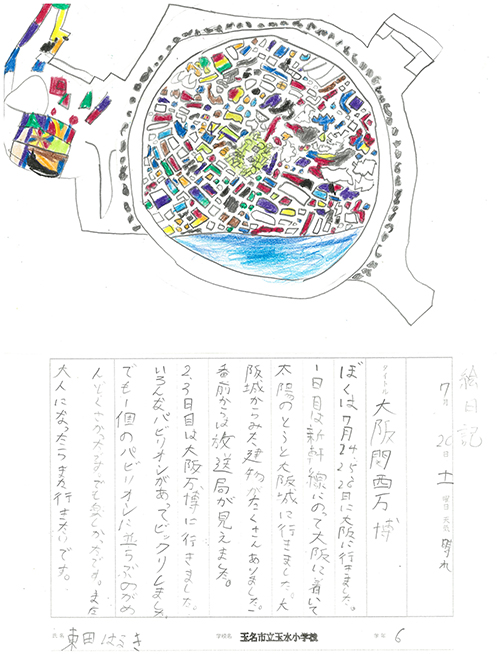 絵日記
7月 26日 土曜日 天気 晴れ
タイトル 大阪関西万博
ぼくは7月24,25,26日に大阪に行きました。
1日目は新幹線にのって大阪に着いて
太陽のとうと大阪城に行きました。大
阪城からみた建物がたくさんありました。一
番前からは放送局が見えました。
2,3日目は大阪万博に行きました。
いろんなパビリオンがあってビックリしました。
でも1個のパビリオンに並ぶのがめ
んどくさかったです。でも楽しかったです。また
大人になったらまた行きたいです。
氏名 東田はるき 学校名 玉名市立玉水小学校 学年 6